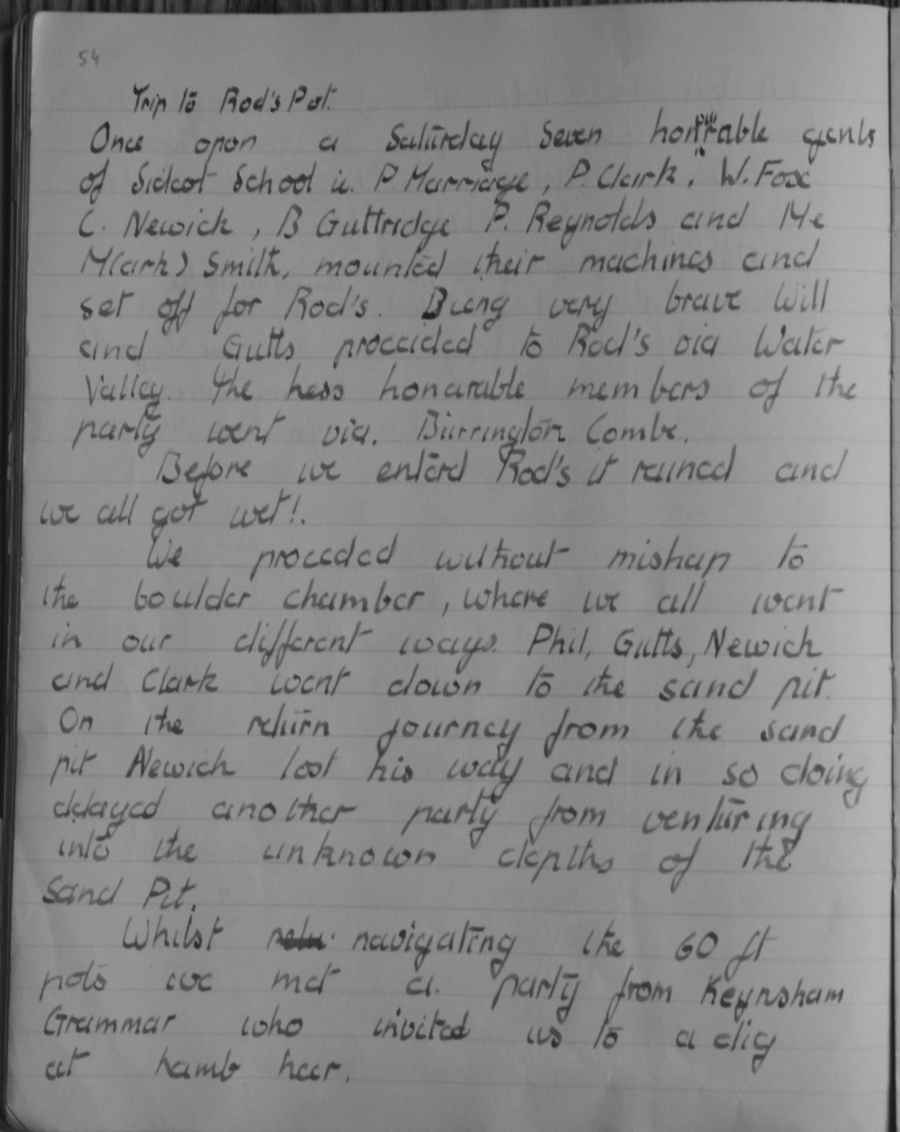 54
Trip to Rod's Pot.
Once opon a Saturday Seven honrable gents
of Sidcot School ie. P Marriage, P. Clark, W. Fox
C. Newick, B Guttridge P. Reynolds and Me
M(ark) Smith, mounted their machines and
set off for Rod's. Bieng very brave Will
and Gutts proceided to Rod's via Water
Valley. The less honarable members of the
party went via. Burrington Combe.
Before we enterd Rod's it rained and
we all got wet!.
We proceded without mishap to
the boulder chamber, where we all went
in our different ways. Phil, Gutts, Newick
and Clark went down to the sand pit.
On the return journey from the sand
pit Newick lost his way and in so doing
delayed another party from venturing
into the unknown depths of the
Sand Pit.
Whilst navigating the 60 ft
pots we met a. party from Keynsham
Grammar who invited us to a dig
at lamb lear.